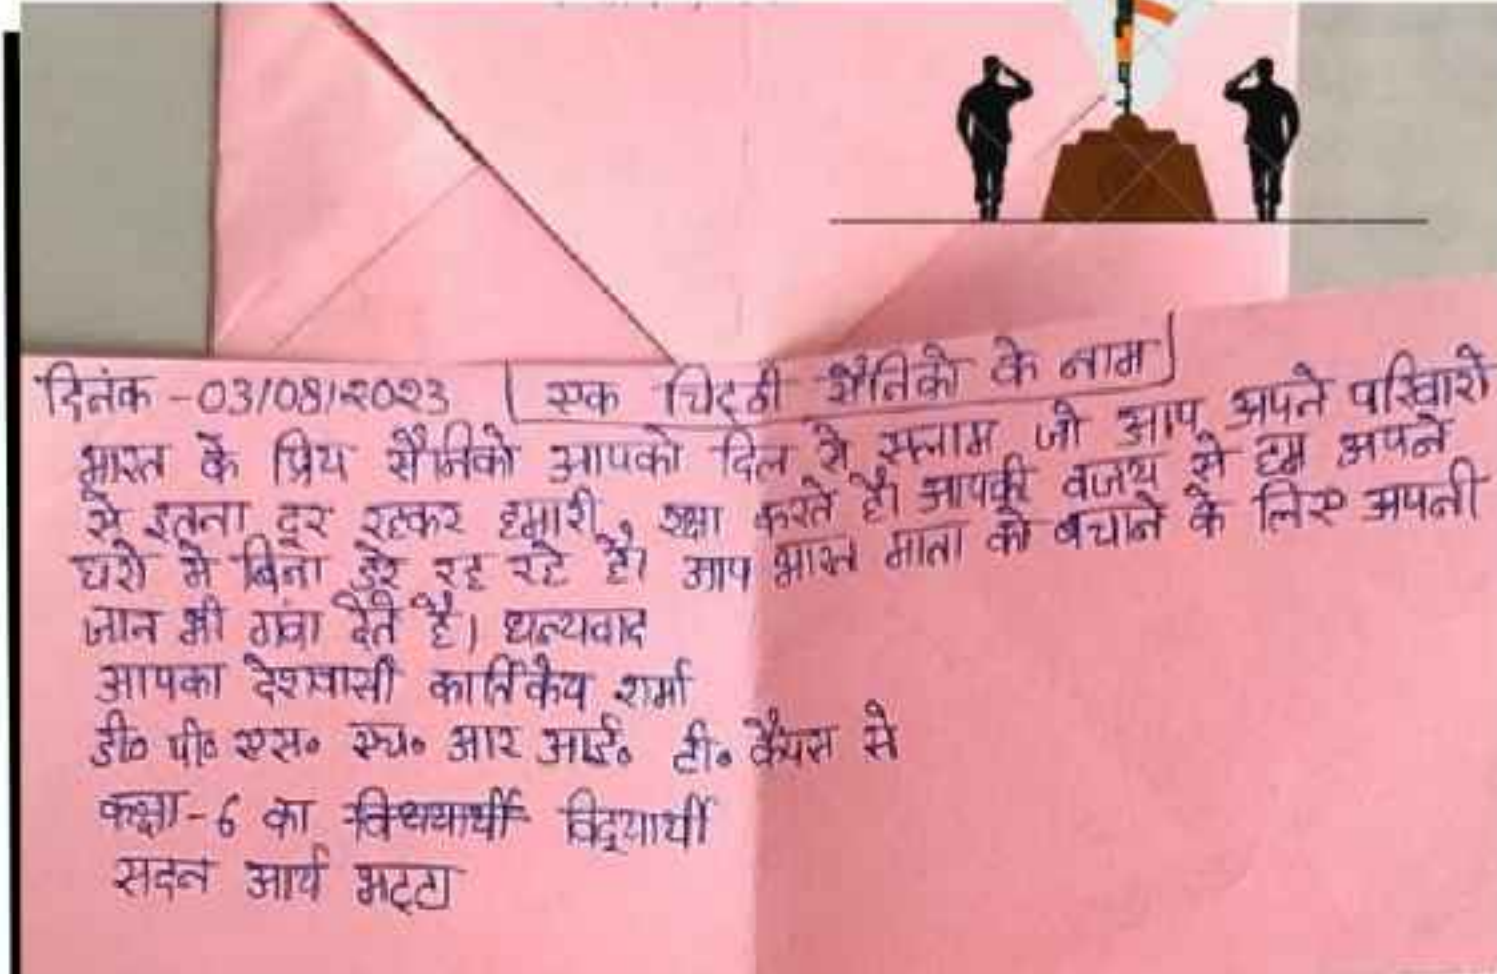 दिनंक - 03/08/2023 एक चिट्ठी सैनिको के नाम
भारत के प्रिय सैनिको आपको दिल से सलाम जो आप अपने परिवारो
से इतना दूर रहकर हमारी रक्षा करते है। आपकी वजय से हम अपने
घरो मे बिना डरे रह रहे है। आप भारत माता को बचाने के लिए अपनी
जान भी गंवा देते है। धन्यवाद
आपका देशवासी कार्तिकेय शर्मा
डी० पी० एस० एच० आर आई० टी० कैंपस से
कक्षा - 6 का विधयार्थी विद्यार्थी
सदन आर्य भट्टा